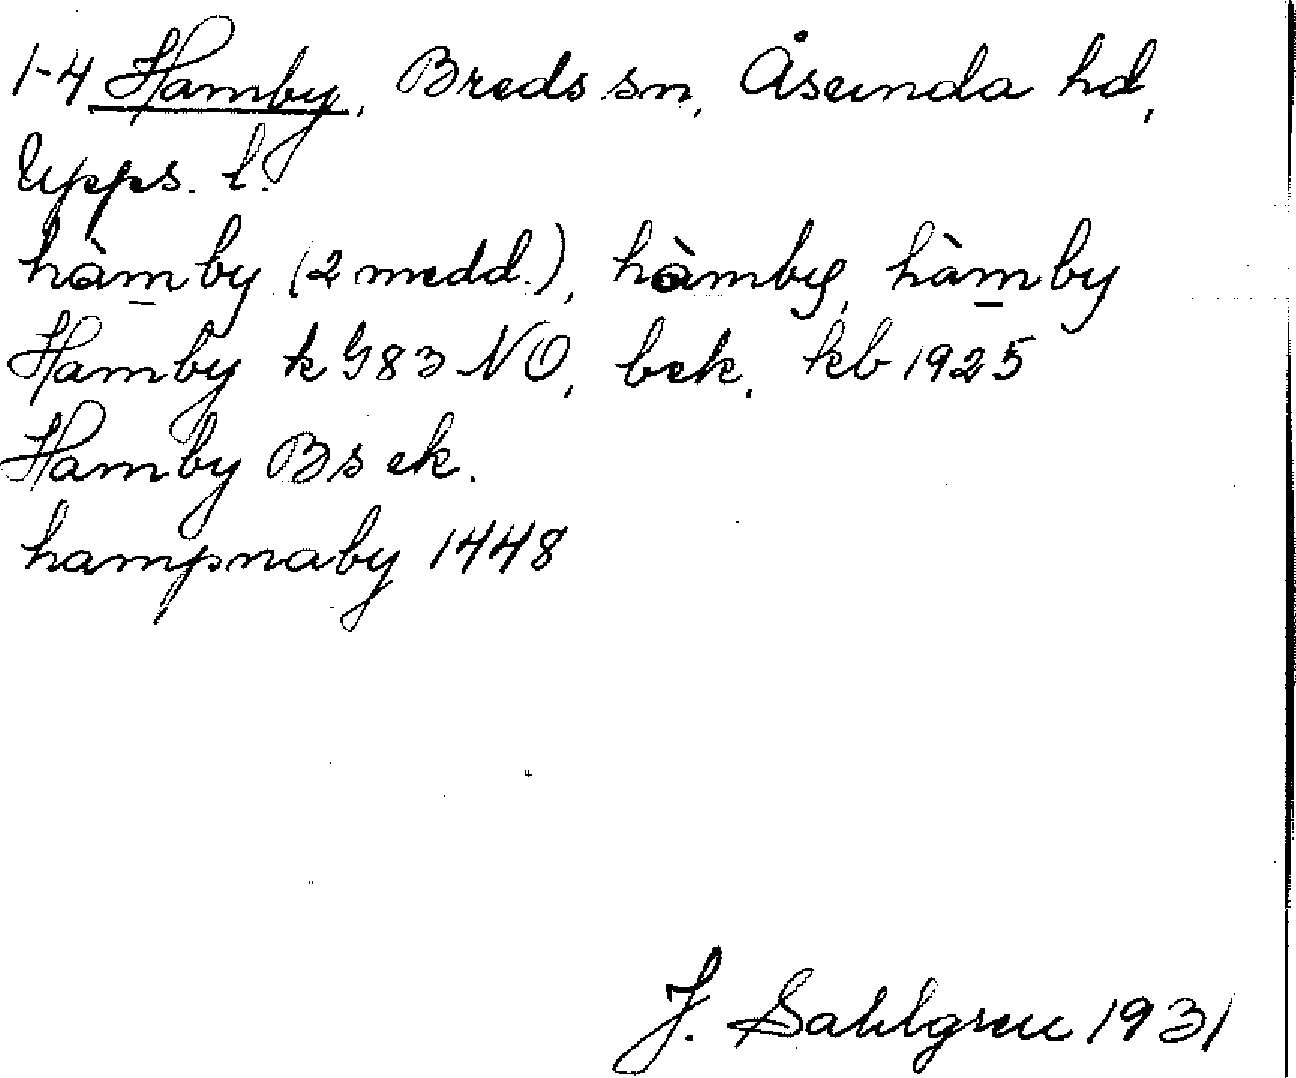 1-4 Hamby, Breds sn, Åsunda hd,
Upps. l.
hàm̲by (2 medd.), hàmby, hàm̲by
Hamby k G83 NO, bek. kb 1925
Hamby Bs ek.
hampnaby 1448
J. Sahlgren 1931